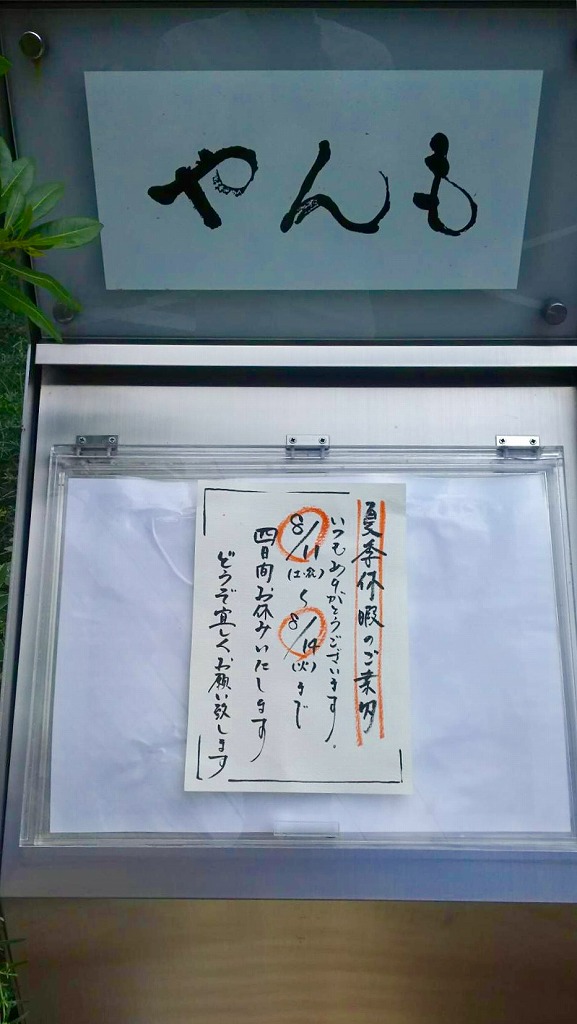 やんも
夏季休暇のご案内
いつもありがとうございます。
8/11(土・祝)〜8/14(火)まで
四日間お休みいたします
どうぞ宜しくお願い致します